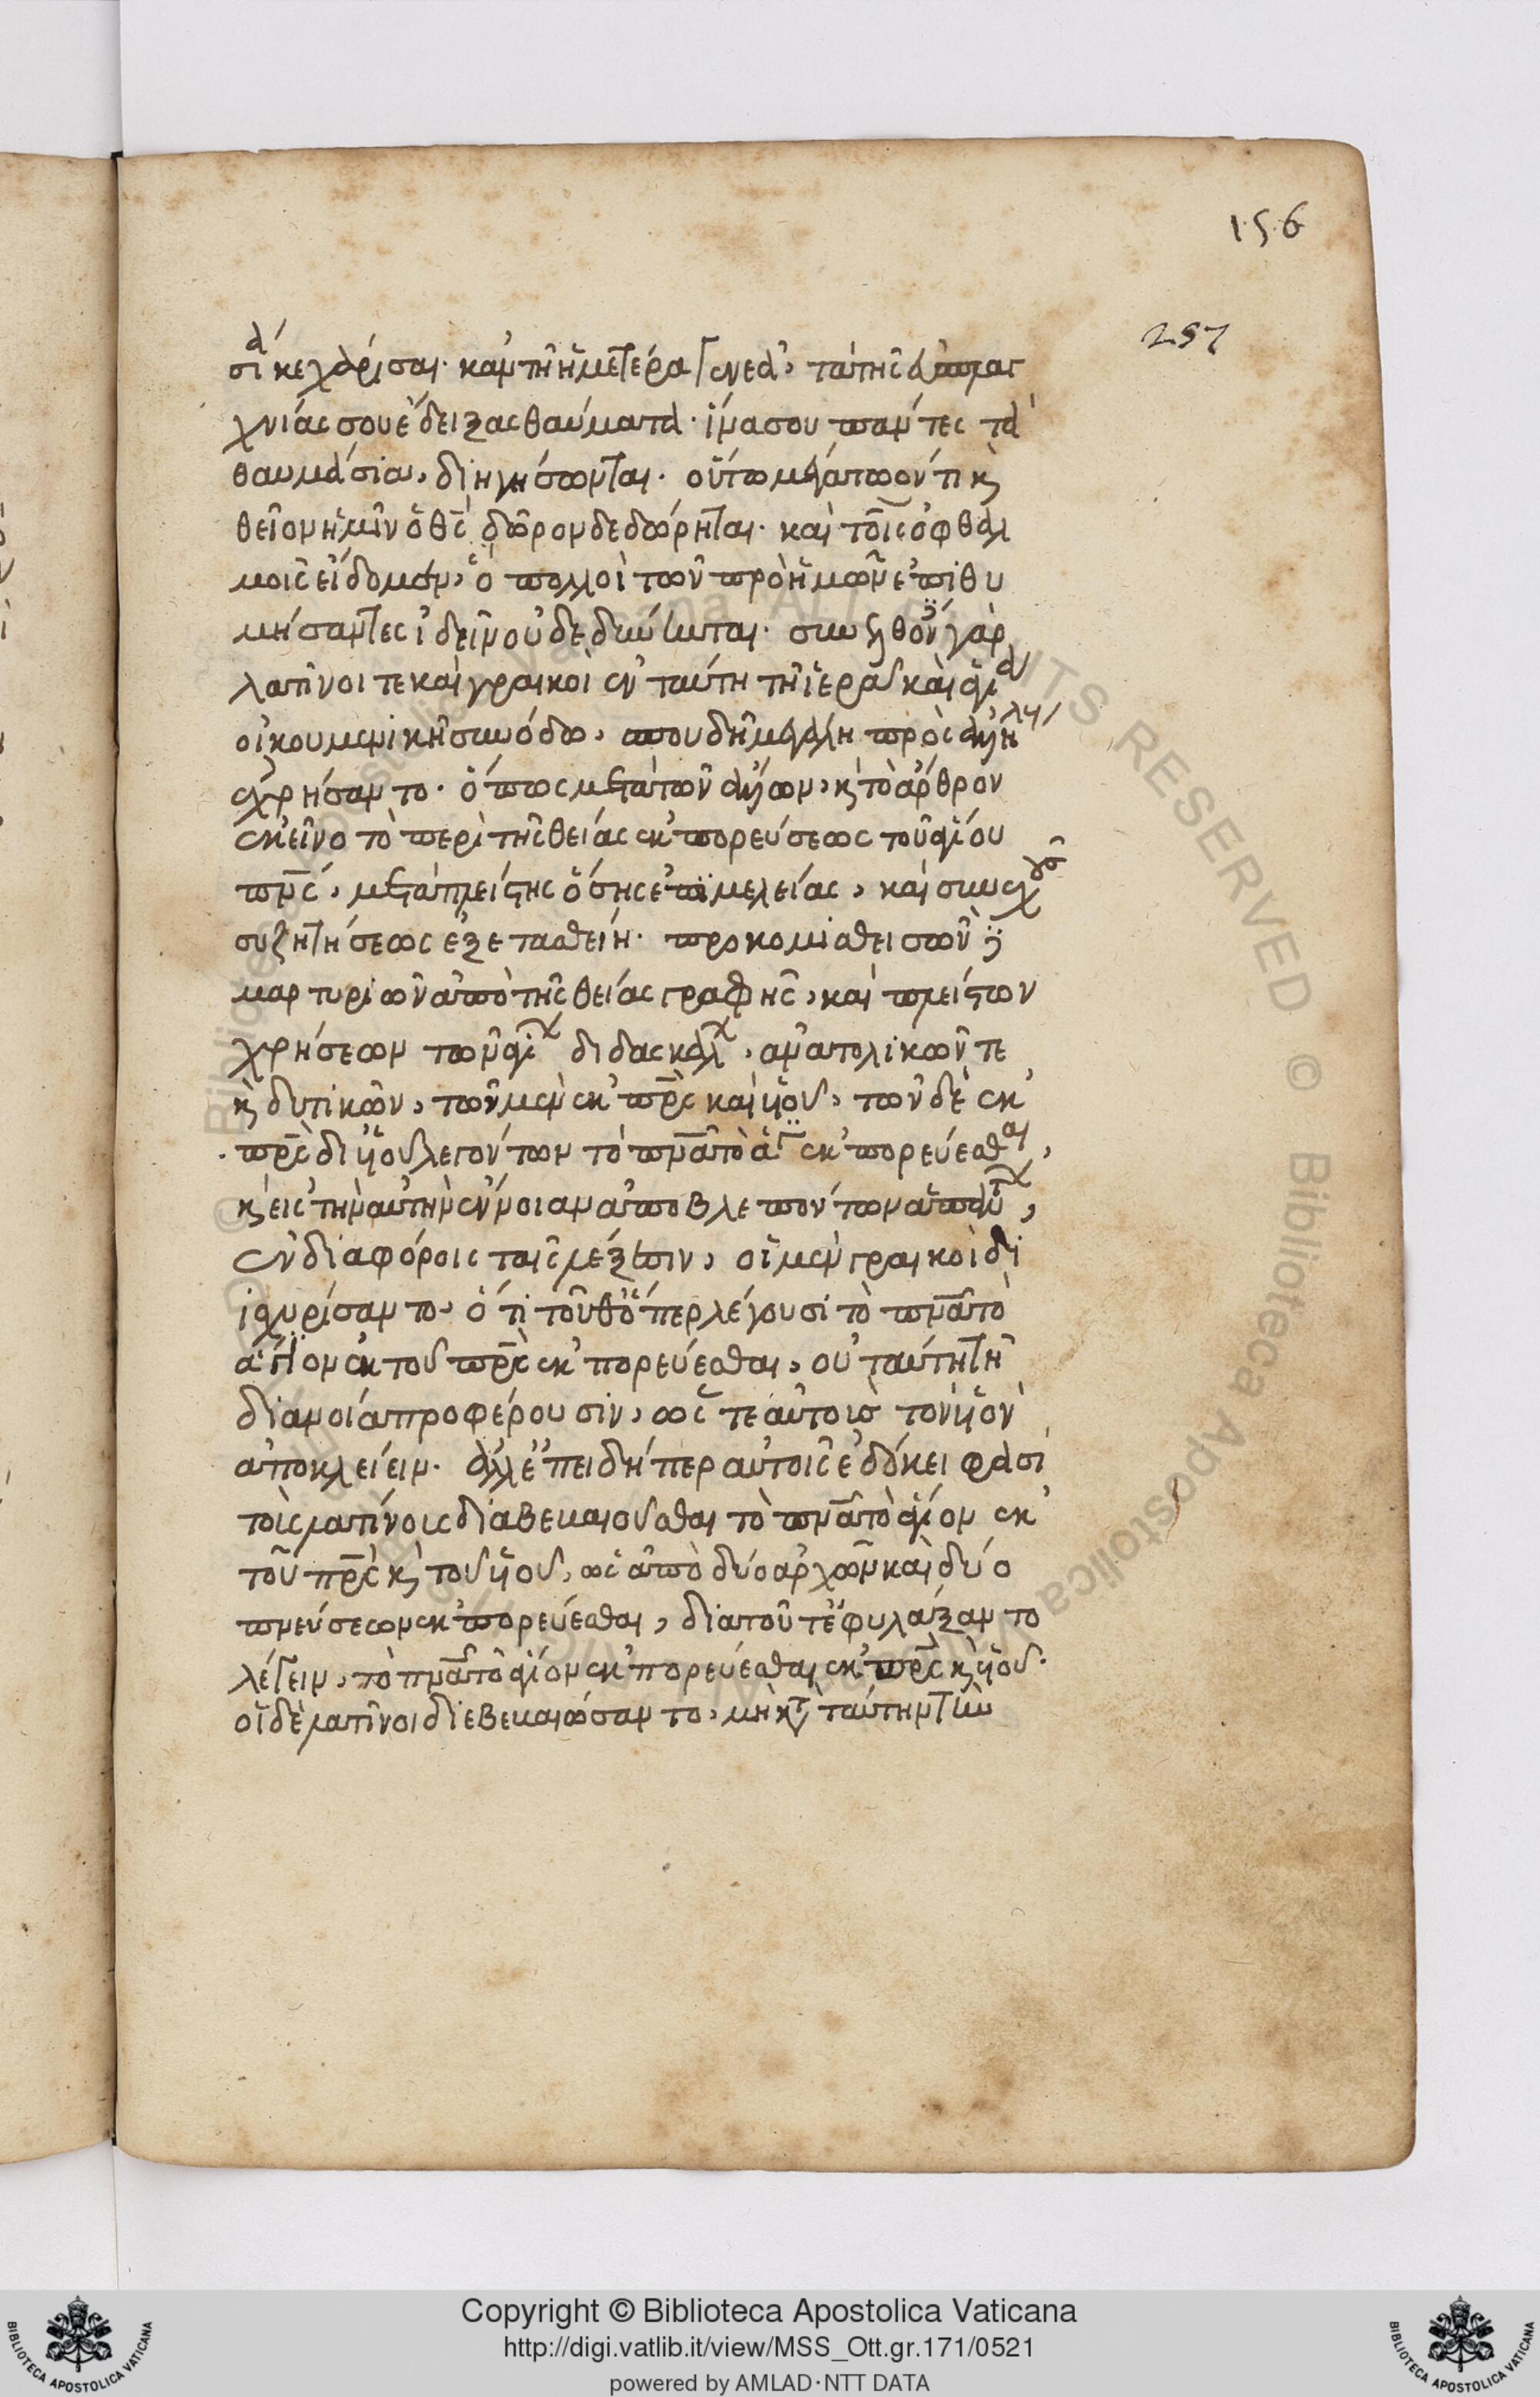 156
257
σία κεχάρισαι· κἀν τῇ ἡμετέρα γενεᾶ, τὰ τῆς εὐσπλαγ
χνίας σου ἔδειξας θαύματα· ἵνα σου πάντες τὰ
θαυμάσια, διηγήσωνται. οὕτω μέγα τοῦτό τι κ
θεῖον ἡμῖν ὁ θς δῶρον δεδώρηται. καὶ τοῖς ὀφθαλ
μοῖς εἴδομεν, ὃ πολλοὶ τῶν πρὸ ἡμῶν ἐπιθυ
μήσαντες ἰδεῖν οὐ δεδύνηνται. συνελθόντες γὰρ
λατῖνοι τε καὶ γραικοὶ ἐν ταύτη τῇ ἱερᾶ καὶ ἁγία
οἰκουμενικῆ συνόδω, σπουδῆ μεγάλη πρὸς ἀλλήλους
ἐχρήσαντο. ὅπως μετὰ τῶν ἄλλων, κ τὸ ἄρθρον
ἐκεῖνο τὸ περὶ τῆς θείας ἐκπορεύσεως τοῦ ἁγίου
πνς, μετὰ πλείστης ὅσης ἐπιμελείας, καὶ συνεχοῦς
συζητήσεως ἐξετασθείη. προκομισθεισῶν δὲ
μαρτυριῶν ἀπὸ τῆς θείας γραφῆς, καὶ πλείστων
χρήσεων τῶν ἁγίων διδασκάλων, ἀνατολικῶν τε
κ δυτικῶν, τῶν μὲν ἐκ πρς καὶ υἱοῦ, τῶν δὲ ἐκ
πρς δι υἱοῦ λεγόντων τὸ πνα τὸ ἅγιον ἐκπορεύεσθαι,
κ εἰς τὴν αὐτὴν ἔννοιαν ἀποβλεπόντων ἁπάντων,
ἐν διαφόροις ταῖς λέξεσιν, οἱ μὲν γραικοὶ δι
ϊσχυρίσαντο, ὅτι τοῦθ' ὅπερ λέγουσι τὸ πνα τὸ
ἅγιον ἐκ τοῦ πρς ἐκπορεύεσθαι, οὐ ταύτη τῆ
διανοία προφέρουσιν, ὥστε αὐτοὺς τὸν υἱὸν
ἀποκλείειν. ἀλλ' ἐπειδήπερ αὐτοῖς ἐδόκει φασὶ
τοὺς λατίνους διαβεβαιοῦσθαι τὸ πνα τὸ ἅγιον ἐκ
τοῦ πρς κ τοῦ υἱοῦ, ὡς ἀπὸ δύο ἀρχῶν καὶ δύο
πνεύσεων ἐκπορεύεσθαι, διὰ τοῦτ' ἐφυλάξαντο
λέγειν, τὸ πνα τὸ ἅγιον ἐκπορεύεσθαι ἐκ πρς κ υἱοῦ.
οἱ δὲ λατῖνοι διεβεβαιώσαντο, μὴ κατὰ ταύτην τὴν
Copyright © Biblioteca Apostolica Vaticana
http://digi.vatlib.it/view/MSS_Ott.gr.171/0521
powered by AMLAD·NTT DATA